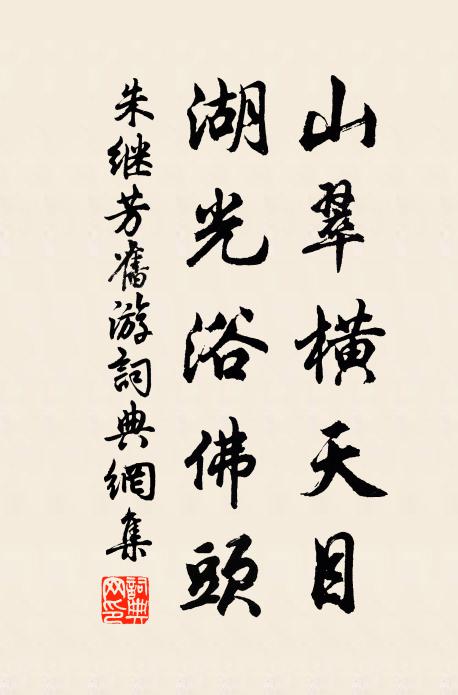 山翠橫天目
湖光浴佛頭
朱继芳舊游詞典網集
詞典网印